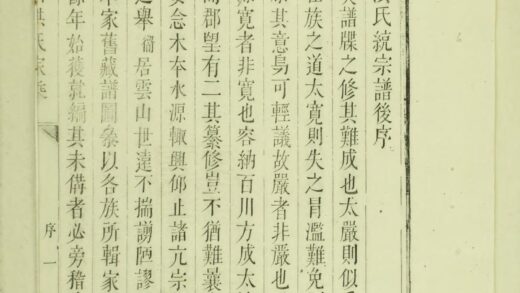 氏統宗譜後序
譜牒之修其難成也太嚴則似
族之道太寬則失之冒濫難免
其意烏可輕議故嚴者非嚴也
寬者非寬也容納百川方成太
郡望有二其纂修豈不猶難曩
念木本水源輒興仰止諸亢宗
之舉 居雲山世遠不揣謭陋謬
家舊藏譜圖叅以各族所輯家
年始獲就編其未備者必旁稽
氏家
序 一